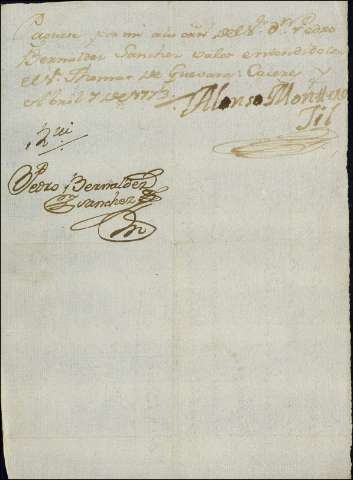 Paguen por mi a la orn. del Sr. Dn. Pedro
Bernaldez Sanchez valor entendido con
el Sr. Thomas de Guevara: Cazeres y
Abril 7 de 1773.
Alonso Montero
Gil
Pedro Bernaldez
Sanchez